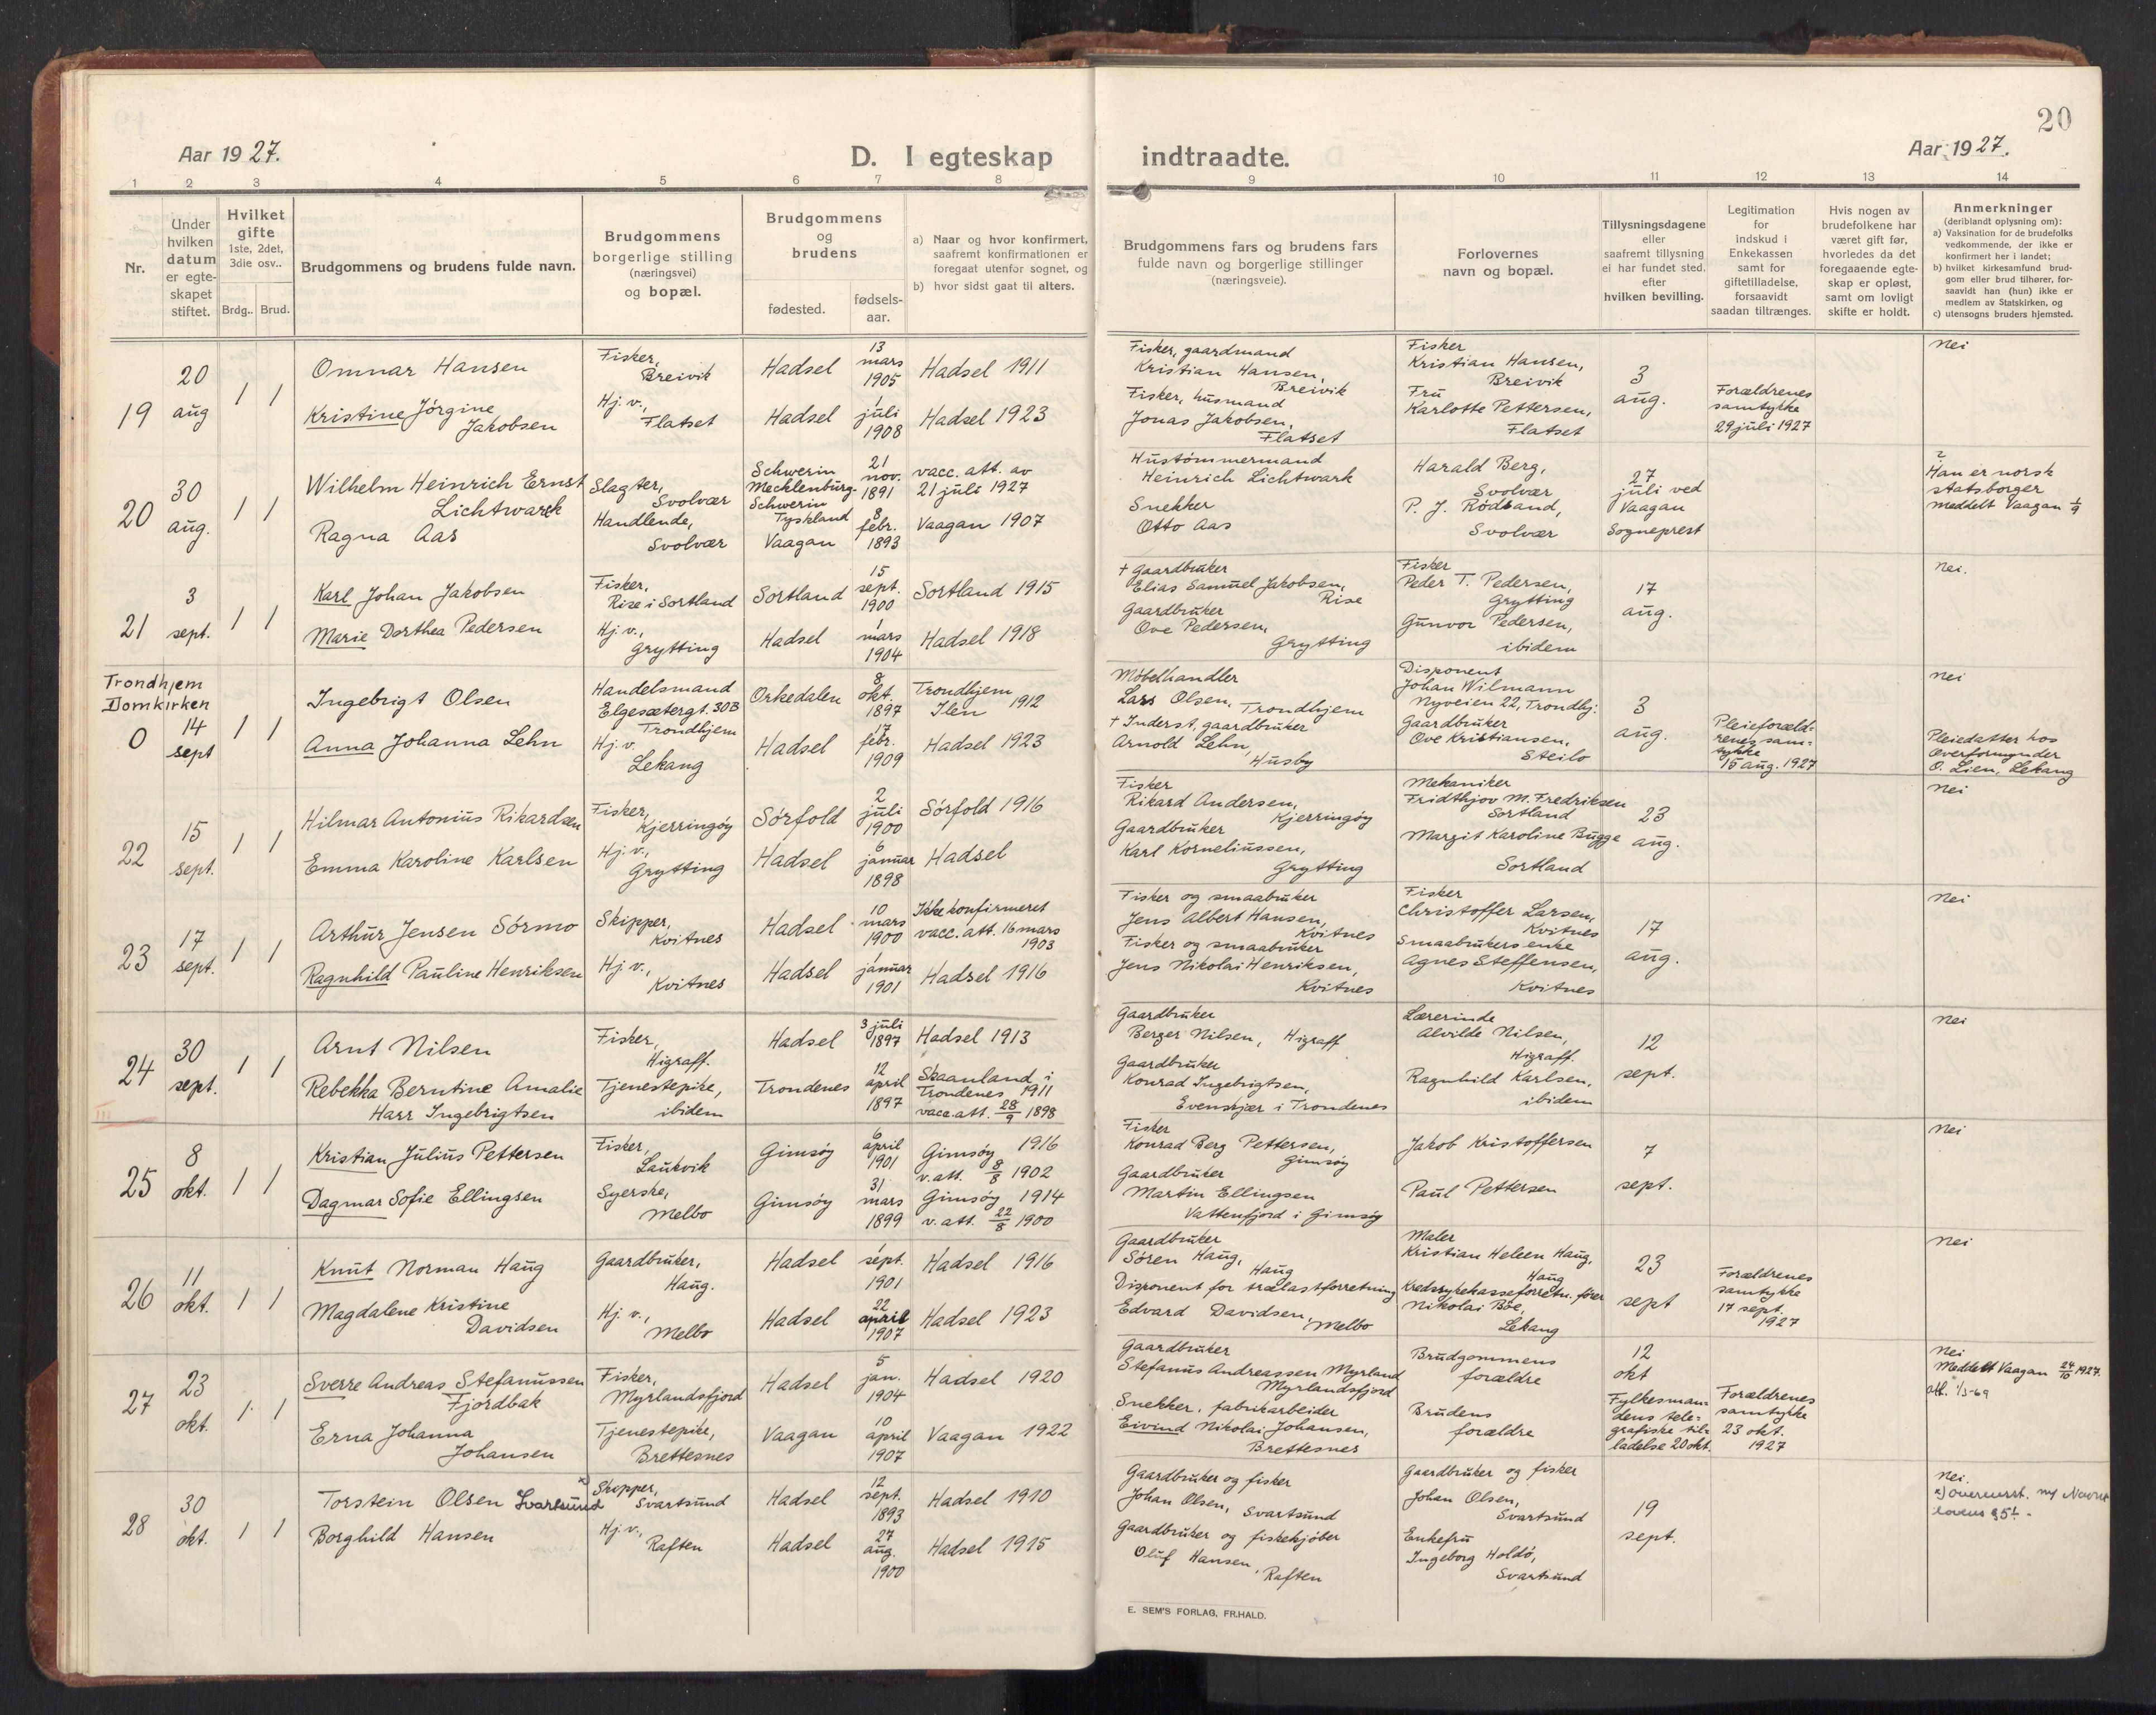 20
Aar 1927.
D. I egteskap indtraadte.
Aar 1927.
1 2 3 4 5 6 7 8 9 10 11 12 13 14
Nr.
Under hvilken datum er egteskapet stiftet.
Hvilket gifte 1ste, 2det, 3die osv..
Brdg.. Brud.
Brudgommens og brudens fulde navn.
Brudgommens borgerlige stilling (næringsvei) og bopæl.
Brudgommens og brudens
fødested.
fødsels-aar.
a) Naar og hvor konfirmert, saafremt konfirmationen er foregaat utenfor sognet, og
b) hvor sidst gaat til alters.
Brudgommens fars og brudens fars fulde navn og borgerlige stillinger (næringsveie).
Forlovernes navn og bopæl.
Tillysningsdagene eller saafremt tillysning ei har fundet sted. efter hvilken bevilling.
Legitimation for indskud i Enkekassen samt for giftetilladelse, forsaavidt saadan tiltrænges.
Hvis nogen av brudefolkene har været gift før, hvorledes da det foregaaende egteskap er opløst, samt om lovligt skifte er holdt.
Anmerkninger
(deriblandt oplysning om):
a) Vaksination for de brudefolks vedkommende, der ikke er konfirmert her i landet;
b) hvilket kirkesamfund brudgom eller brud tilhører, forsaavidt han (hun) ikke er medlem av Statskirken, og
c) utensogns bruders hjemsted.
19
20 aug
1 1
Omnar Hansen
Kristine Jörgine Jakobsen
Fisker, Breivik
Hj. v., Flatset
Hadsel 13 mars 1905 Hadsel 1911
Hadsel 1 juli 1908 Hadsel 1923
Fisker, gaardmand
Kristian Hansen, Breivik
Fisker, husmand
Jonas Jakobsen, Flatset
Fisker
Kristian Hansen, Breivik
Fru
Karlotte Pettersen, Flatset
3 aug.
Forældrenes samtykke 29 juli 1927
Nei
20
30 aug.
1 1
Wilhelm Heinrich Ernst Lichtwark
Ragna Aas
Slagter, Svolvær
Handlende, Svolvær
Schwerin Mecklenburg-Schwerin Tyskland 21 nov. 1891 vacc. att. av 21 juli 1927
Vaagan 8 febr. 1893 Vaagan 1907
Hustömmermand
Heinrich Lichtwark
Snekker
Otto Aas
Harald Berg, Svolvær
P. J. Rödsand, Svolvær
27 juli ved Vaagan Sogneprest
Han er norsk statsborger
meddelt Vaagan 1/9
21
3 sept.
1 1
Karl Johan Jakobsen
Marie Dorthea Pedersen
Fisker, Rise i Sortland
Hj v., Grytting
Sortland 15 sept. 1900 Sortland 1915
Hadsel 1 mars 1904 Hadsel 1918
+ Gaardbruker
Elias Samuel Jakobsen, Rise
Gaardbruker
Ove Pedersen, Grytting
Fisker
Peder T. Pedersen, Grytting
Gunvor Pedersen, ibidem
17 aug.
Nei.
Trondhjem Domkirken
0
14 sept
1 1
Ingebrigt Olsen
Anna Johanna Lehn
Handelsmand Elgesætergt. 30B Trondhjem
Hj. v. Lekang
Orkedalen 8 okt. 1897 Trondhjem Ilen 1912
Hadsel 17 febr. 1909 Hadsel 1923
Møbelhandler
Lars Olsen, Trondhjem
+ Inderst, gaardbruker
Arnold Lehn, Husby
Disponent
Johan Wilmann
Nyveien 22, Trondhj:
Gaardbruker
Ove Kristiansen, Steilo
3 aug.
Pleieforældrenes samtykke 15 aug. 1927
Nei
Pleiedatter hos Overformynder O. Lien, Lekang
22
15 sept.
1 1
Hilmar Antonius Rikardsen
Emma Karoline Karlsen
Fisker, Kjerringöy
Hj. v., Grytting
Sörfold 2 juli 1900 Sörfold 1916
Hadsel 6 januar 1898 Hadsel
Fisker
Rikard Andersen, Kjerringöy
Gaardbruker
Karl Korneliussen, Grytting
Mekaniker
Fridthjov M. Fredriksen Sortland
Margit Karoline Bugge Sortland
23 aug.
Nei
23
17 sept.
1 1
Arthur Jensen Sörmo
Ragnhild Pauline Henriksen
Skipper, Kvitnes
Hj v., Kvitnes
Hadsel 10 mars 1900 Ikke konfirmeret vacc. att. 16 mars 1903
Hadsel 1 januar 1901 Hadsel 1916
Fisker og smaabruker
Jens Albert Hansen, Kvitnes
Fisker og smaabruker
Jens Nikolai Henriksen, Kvitnes
Fisker
Christoffer Larsen, Kvitnes
Smaabrukers enke
Agnes Steffensen, Kvitnes
17 aug.
Nei
24
III
30 sept.
1 1
Arnt Nilsen
Rebekka Berntine Amalie Harr Ingebrigtsen
Fisker, Higraff.
Tjenestepike, ibidem
Hadsel 3 juli 1897 Hadsel 1913
Trondenes 12 april 1897 Skaanland i Trondenes 1911 vacc. att. 28/9 1898
Gaardbruker
Berger Nilsen, Higraff
Gaardbruker
Konrad Ingebrigtsen, Evenskjær i Trondenes
Lærerinde
Alvilde Nilsen, Higraff.
Ragnhild Karlsen, ibidem
12 sept.
Nei
25
8 okt.
1 1
Kristian Julius Pettersen
Dagmar Sofie Ellingsen
Fisker, Laukvik
Syerske, Melbo
Gimsöy 6 april 1901 Gimsöy 1916 v. att. 8/8 1902
Gimsöy 31 mars 1899 Gimsöy 1914 v. att. 22/8 1900
Fisker
Konrad Berg Pettersen, Gimsöy
Gaardbruker
Martin Ellingsen Vattenfjord i Gimsöy
Jakob Kristoffersen
Paul Pettersen
7 sept.
Nei
26
11 okt.
1 1
Knut Norman Haug
Magdalene Kristine Davidsen
Gaardbruker, Haug.
Hj. v., Melbo
Hadsel 1 sept. 1901 Hadsel 1916
Hadsel 22 april 1907 Hadsel 1923
Gaardbruker
Sören Haug, Haug
Disponent for trælastforretning
Edvard Davidsen, Melbo
Maler
Kristian Heleen Haug, Haug
Kredssykekasseforretn. förer
Nikolai Böe, Lekang
23 sept
Forældrenes samtykke 17 sept. 1927
Nei
27
23 okt.
1 1
Sverre Andreas Stefanussen Fjordbak
Erna Johanna Johansen
Fisker, Myrlandsfjord
Tjenestepike, Brettesnes
Hadsel 5 jan. 1904 Hadsel 1920
Vaagan 10 april 1907 Vaagan 1922
Gaardbruker
Stefanus Andreassen Myrland Myrlandsfjord
Snekker, fabrikarbeider
Eivind Nikolai Johansen, Brettesnes
Brudgommens forældre
Brudens forældre
12 okt
Fylkesmandens telegrafiske tilladelse 20 okt.
Forældrenes samtykke 23 okt. 1927
Nei
Meddelt Vaagan 24/10 1927.
att. 1/5-69
28
30 okt.
1 1
Torstein Olsen Svartsund x)
Borghild Hansen
Skipper, Svartsund
Hj. v., Raften
Hadsel 12 sept. 1893 Hadsel 1910
Hadsel 27 aug. 1900 Hadsel 1915
Gaardbruker og fisker
Johan Olsen, Svartsund
Gaardbruker og fiskekjöber
Oluf Hansen, Raften
Gaardbruker og fisker
Johan Olsen, Svartsund
Enkefru
Ingeborg Holdö, Svartsund
19 sept.
Nei.
E. SEM'S FORLAG, FR.HALD.